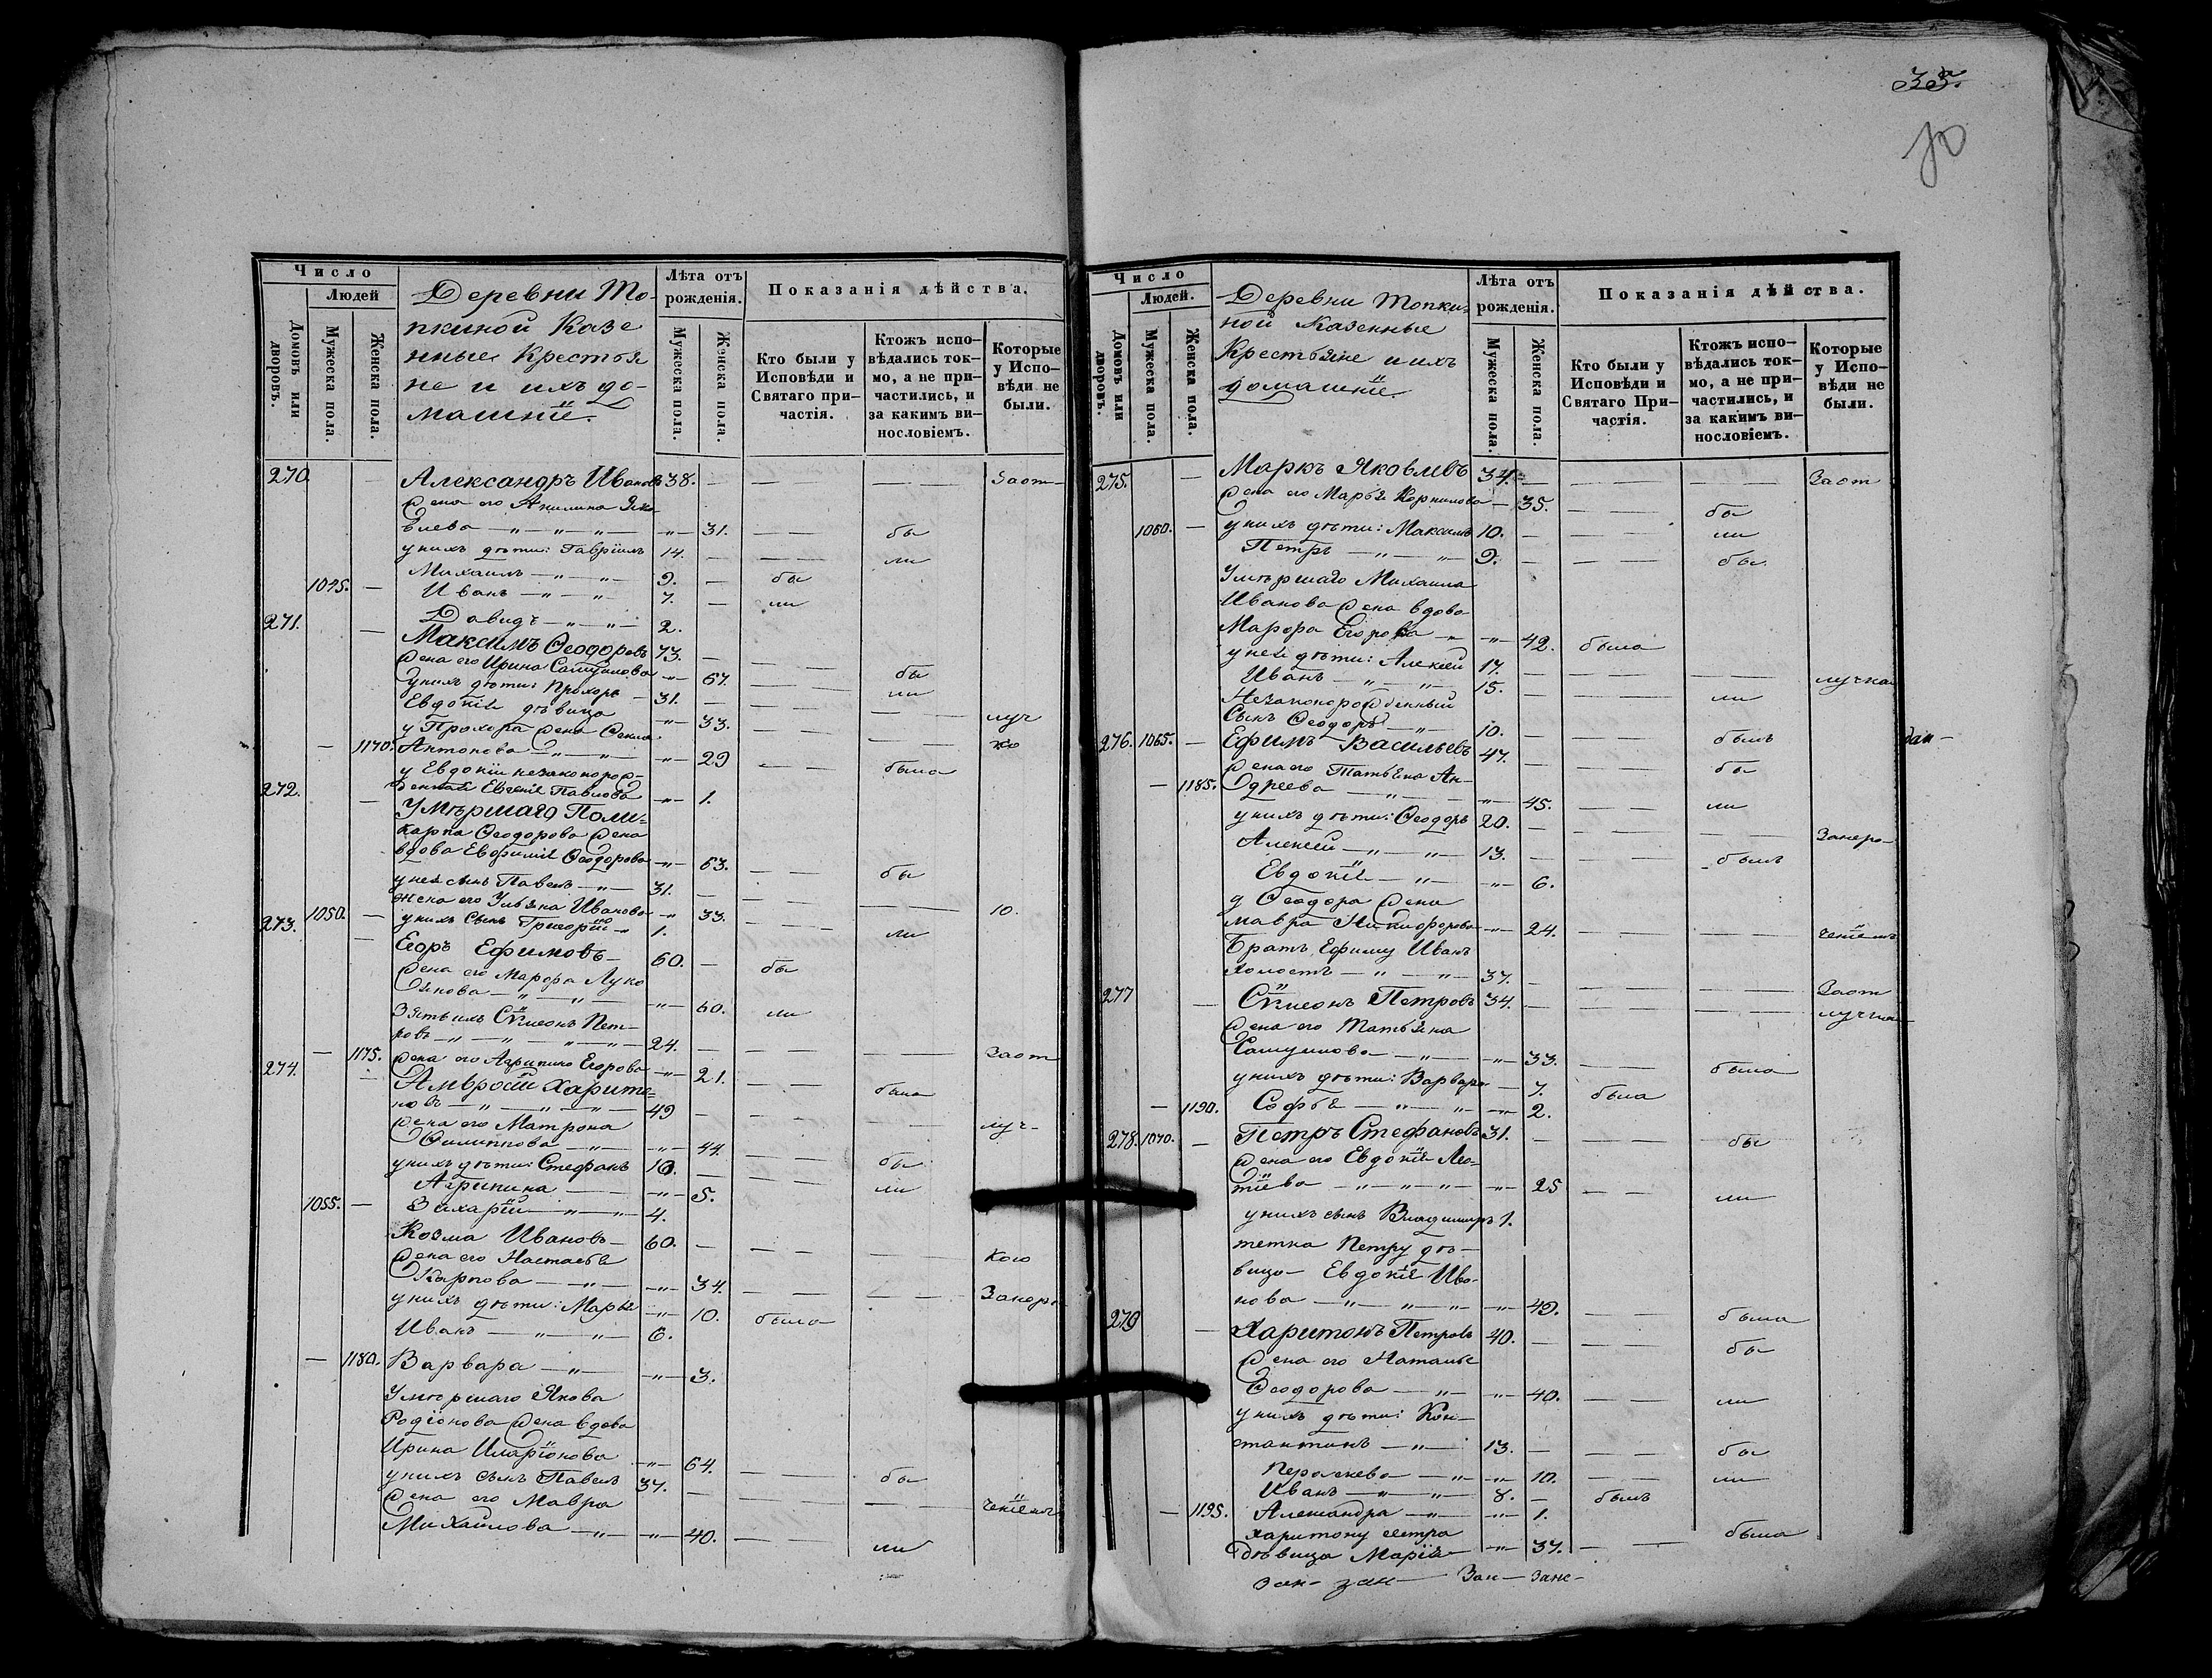 35.
Число
Людей
Домовъ или дворовъ.
Мужеска пола.
Женска пола.
Деревни То-
пкиной Казе
нные Крестья
не и ихъ до-
машніе.
Лѣта отъ
рожденія.
Мужеска пола.
Женска пола.
Показанія дѣйства.
Кто были у
Исповѣди и
Святаго при-
частія.
Ктожъ испо-
вѣдались ток-
мо, а не при-
частились, и
за какимъ ви-
нословіемъ.
Которые
у Испо-
вѣди не
были.
270. — Александръ Ивановъ 38. — — —
жена его Акилина Яко
влева — „ — „ — „ — „ — 31. — — бы
у нихъ дѣти: Гавріилъ 14. — — — ли
Михаилъ — „ — „ — 9. — бы
1045. — Иванъ — „ — „ — 7. — ли
271. Давидъ — „ — „ — 2.
— Максимъ Ѳеодоровъ 73. —
жена его Ирина Самуилова — „ — 67. — — бы
у нихъ дѣти: Прохоръ — 31. — — — ли
Евдокія дѣвица — „ — 33. — — — луч
у Прохора жена Ѳекла
— 1170. Антонова — „ — „ — „ — 29 — — была
у Евдокіи незаконорож-
денная Евгенія Павлова — „ — 1.
272. — Умѣршаго Поли-
карпа Ѳеодорова жена
вдова Евфимія Ѳеодорова — „ — 63. — — бы
у нея сынъ Павелъ — „ — 31. —
жена его Ульяна Иванова — „ 33. — — — ю.
273. 1050. — у нихъ сынъ Григорій — „ 1. — — — ли
— Егоръ Ефимовъ — 60. — бы
жена его Марфа Лукь
янова — „ — „ — „ — 60. — ли
Зять ихъ Сѵмеонъ Пет-
ровъ — „ — „ — „ — „ — 24. — — —
— 1175. жена его Агрипина Егорова — „ — 21. — — была
274. — Амвросій Харито-
новъ — „ — „ — „ — 49 — — — луч-
жена его Матрона
Филиппова — „ — „ — 44. — — бы
у нихъ дѣти: Стефанъ 10. — — — ли
Агрипина — „ — 5.
1055. — Захарій — „ — „ — 4.
Козма Ивановъ — 60. — — — кою
жена его Настасья
Карпова — „ — „ — 34. — — —
у нихъ дѣти: Марья — „ — 10. была
Иванъ — „ — „ — 6.
— 1180. Варвара — „ — „ — 3.
Умѣршаго Якова
Родіонова жена вдова
Ирина Иларіонова — „ — 64. — — бы
у нихъ сынъ Павелъ 37. — — — ченіемъ
жена его Мавра
Михайлова — „ — „ — 40. — — ли
Число
Людей.
Домовъ или дворовъ.
Мужеска пола.
Женска пола.
Деревни Топки-
ной Казенные
Крестьяне и ихъ
домашніе.
Лѣта отъ
рожденія.
Мужеска пола.
Женска пола.
Показанія дѣйства.
Кто были у
Исповѣди и
Святаго При-
частія.
Ктожъ испо-
вѣдались ток-
мо, а не при-
частились, и
за какимъ ви-
нословіемъ.
Которые
у Испо-
вѣди не
были.
275. — Маркъ Яковлевъ 34. — — —
жена его Марья Корнилова — 35. — — бы
1060. — у нихъ дѣти: Максимъ 10. — — — ли
Петръ — „ — „ — 9. — — — бы
Умѣршаго Михаила
Иванова жена вдова
Марфа Егорова — „ — „ — 42. была
у ней дѣти: Алексѣй 17. — — —
Иванъ — „ — „ — 15. — — — ли
Незаконорожденный
сынъ Ѳеодоръ — „ — 10. — — — былъ
276. 1065. — Ефимъ Васильевъ 47. — — — бы
жена его Татьяна Ан-
— 1185. дреева — „ — „ — 45. — — ли
у нихъ дѣти: Ѳеодоръ 20. — — —
Алексѣй — „ — „ — 13. — — — былъ
Евдокія — „ — „ — 6.
у Ѳеодора жена
Мавра Никифорова — „ — 24. — — — ченіемъ
Братъ Ефиму Иванъ
холостъ — „ — „ — 37. — — —
277 — Сѵмеонъ Петровъ 34. — — —
жена его Татьяна
Самуилова — „ — „ — 33. — — была
у нихъ дѣти: Варвара — 7. была
— 1190. Софья — „ — „ — „ — 2.
278. 1070. — Петръ Стефановъ 31. — — — бы
жена его Евдокія Ле-
тіева — „ — „ — „ — „ — 25 — — ли
у нихъ сынъ Владимиръ 1.
тетка Петру дѣ-
вица Евдокія Ива-
нова — „ — „ — „ — „ — 49. — — была
279 — Харитонъ Петровъ 40. — — — бы
жена его Наталья
Ѳеодорова — „ — „ — 40. — — ли
у нихъ дѣти: Кон-
стантинъ — „ — 13. — — — бы
Перасковья — „ — „ — 10. — — ли
Иванъ — „ — „ — 8. — былъ
— 1195. Александра — „ — „ — 1.
Харитону сестра
дѣвица Марія — „ — 37. — — была